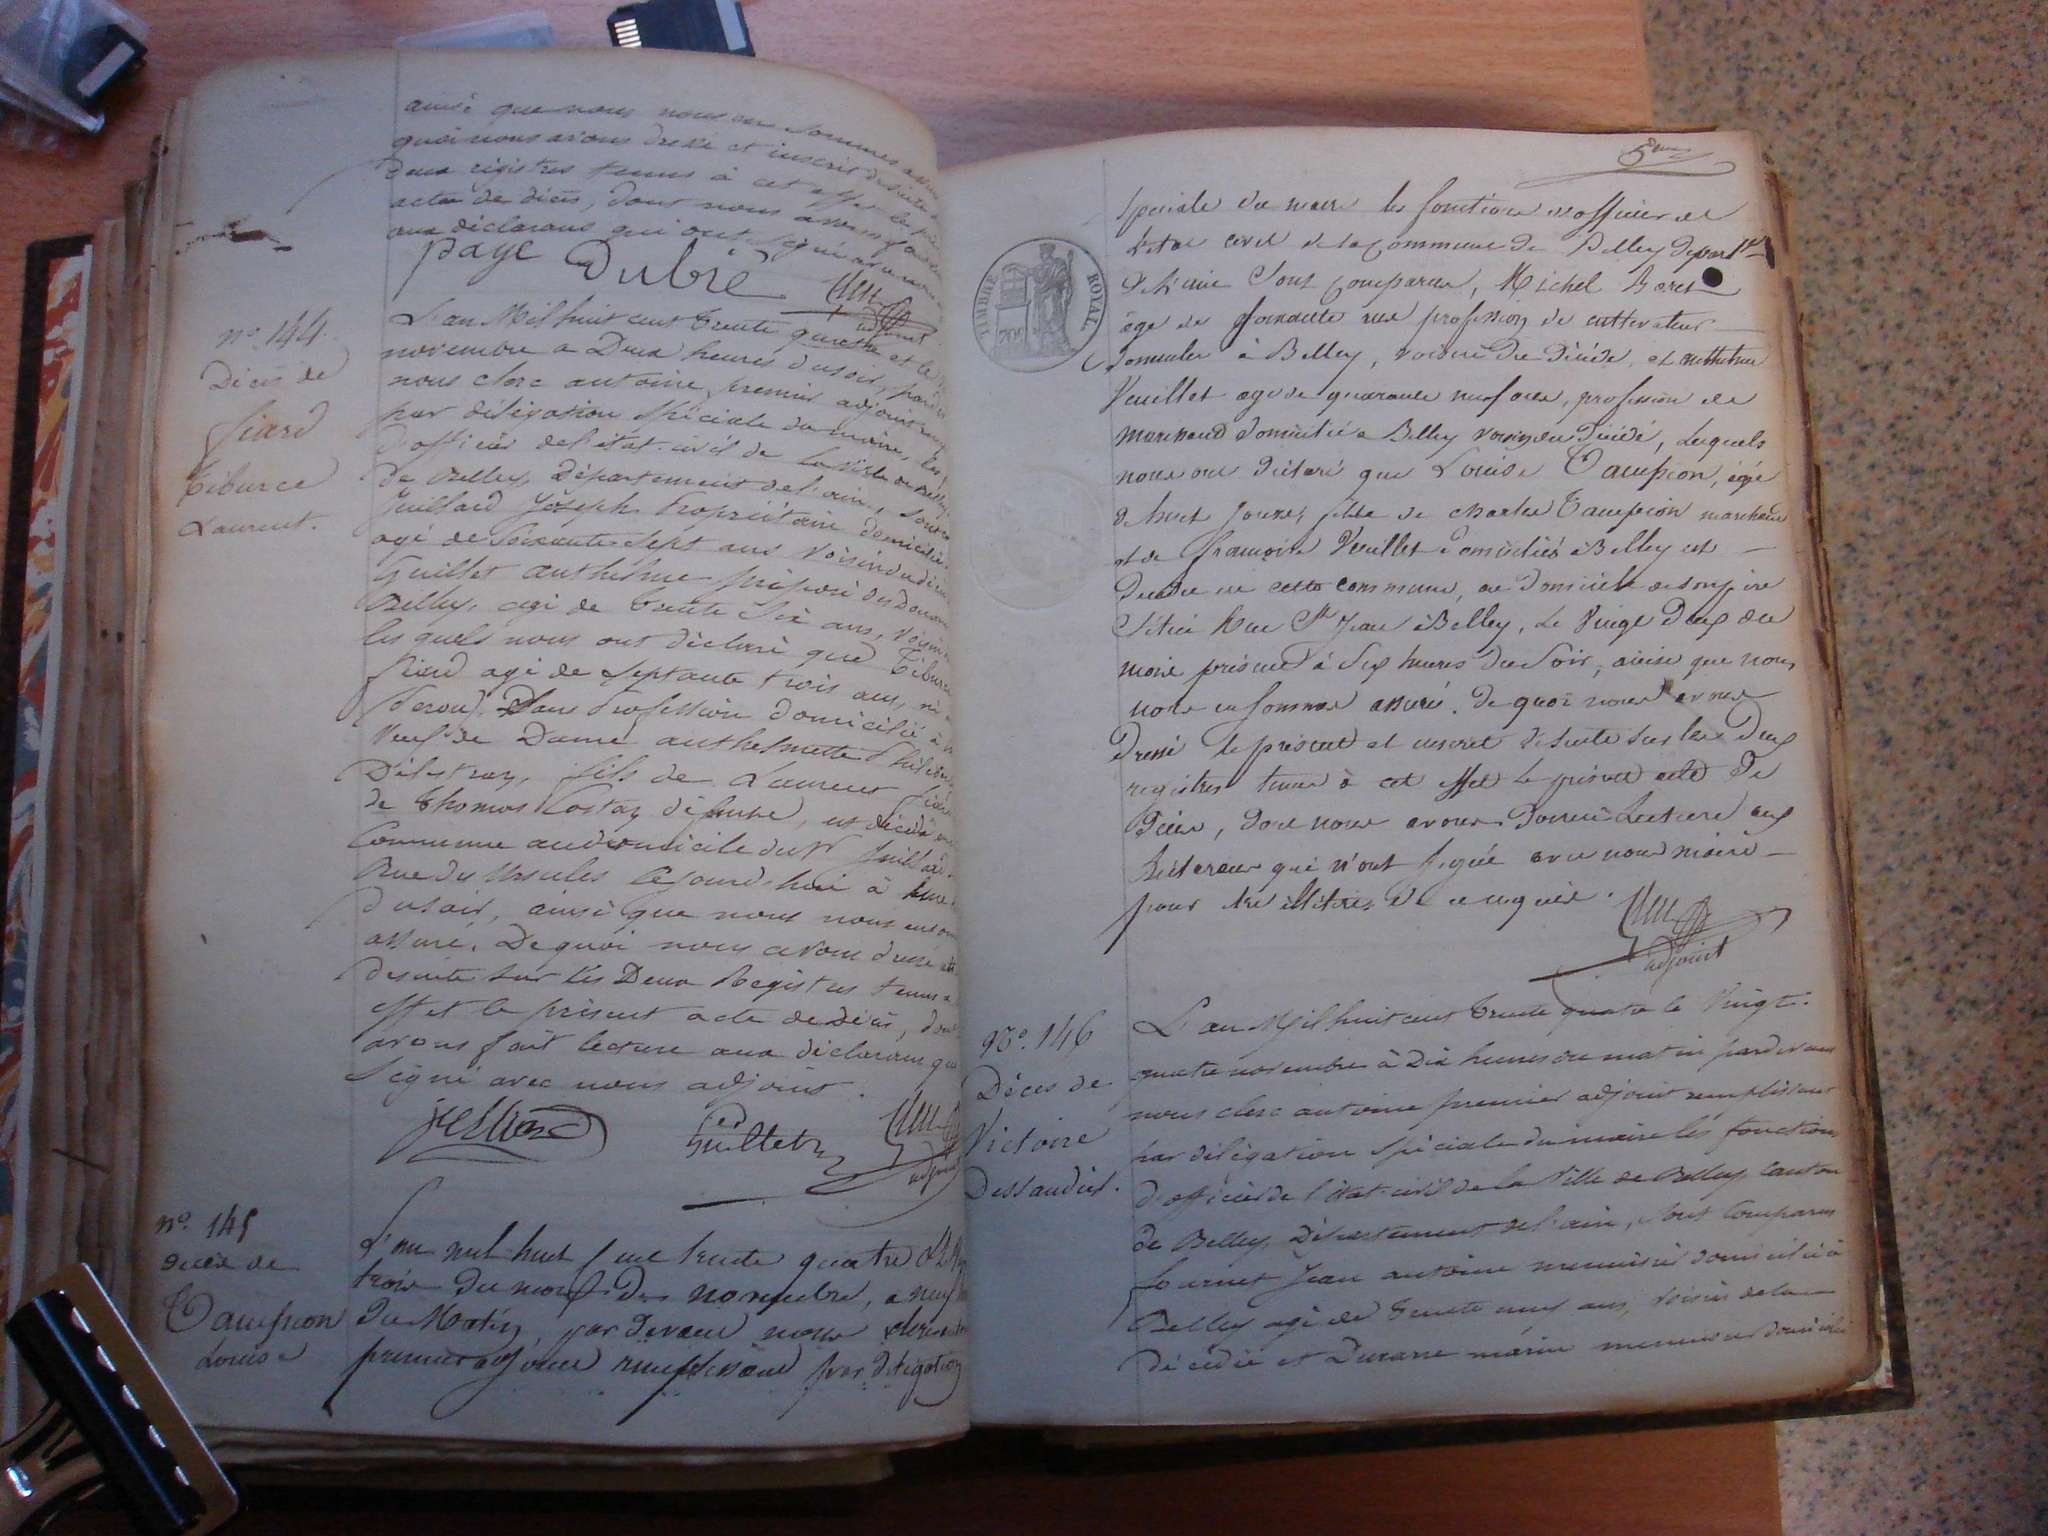 ainsi que nous nous en sommes
quoi nous avons dressé et inscrit de suite
deux régistres tenus à cet effet le
acte de décès, dont nous avons
aux déclarans qui ont signé avec
paye Dubié
adjoint
n.° 144.
Décès de
fiard
Tiburce
Laurent.
L'an Mil huit cent trente quatre et le
novembre a Deux heures du soir, pard
nous clerc antoine premier adjoint
par déligation spéciale du maire, les
d'officier de l'état-civil de la ville de Belley
de Belley, Département de l'ain, sont
Juillard Joseph Propriétaire domicilié
agé de soixante-sept ans voisin du
Guillet anthelme préposé des Douanes
Belley, agé de trente six ans, voisin
lesquels nous ont déclaré que Tiburce
fiard agé de septante trois ans, né
, sans Profession domicilié à
Veuf de Dame anthelmette
fils de Laurent
de Thomas Costaz défunte, est décédé
Commune au domicile du Sr Juillard
Rue des Ursules ce jourd'hui à
du soir, ainsi que nous nous en
assuré, De quoi nous avons dressé
de suite sur les Deux Registres tenus a
effet le présent acte de Décès, dont
avons fait lecture aux déclarans qui
signé avec nous adjoint.
Guillet
adjoint
n.° 145
décès de
Taussion
Louise
L'an mil huit cent trente quatre & le
trois du mois de novembre, a neuf
Du Matin, par devant nous clerc
premier adjoint remplissant par déligation
5
TIMBRE ROYAL
spéciale du maire les fonctions d'officier de
l'état civil de la commune de Belley depart
de l'ain sont comparus, Michel
âgé de profession de cultivateur
domicilié à Belley, voisin du décédé, et anthelme
Veuillet agé de quarante neuf ans, profession de
marchand domicilié a Belley voisin du décédé, lesquels
nous ont déclaré que Louise Taussion, agée
de huit jours, fille de charles Taussion marchand
et de françoise Veuillet domiciliés à Belley est
décédée en cette commune, au domicile de son père
situé Rue St Jean à Belley, le Vingt Deux du
mois présent à six heures du soir, ainsi que nous
nous en sommes assuré. de quoi nous avons
dressé le présent et inscrit de suite sur les deux
registres tenus à cet effet le présent acte de
décès, dont nous avons donné Lecture aux
déclarans qui n'ont signé avec nous maire
pour être illitérés de ce requis.
adjoint
N.° 146
Décès de
Victoire
Dessaudier.
L'an Mil huit cent trente quatre le Vingt-
quatre novembre à Dix heures du matin pardevant
nous clerc antoine premier adjoint remplissant
par déligation spéciale du maire les fonctions
d'officier de l'état-civil de la Ville de Belley, Canton
de Belley, Département de l'ain, sont Comparus
fournet Jean antoine menuisier domicilié à
Belley agé de trente neuf ans, voisin de la
décédée et marin menuisier domicilié